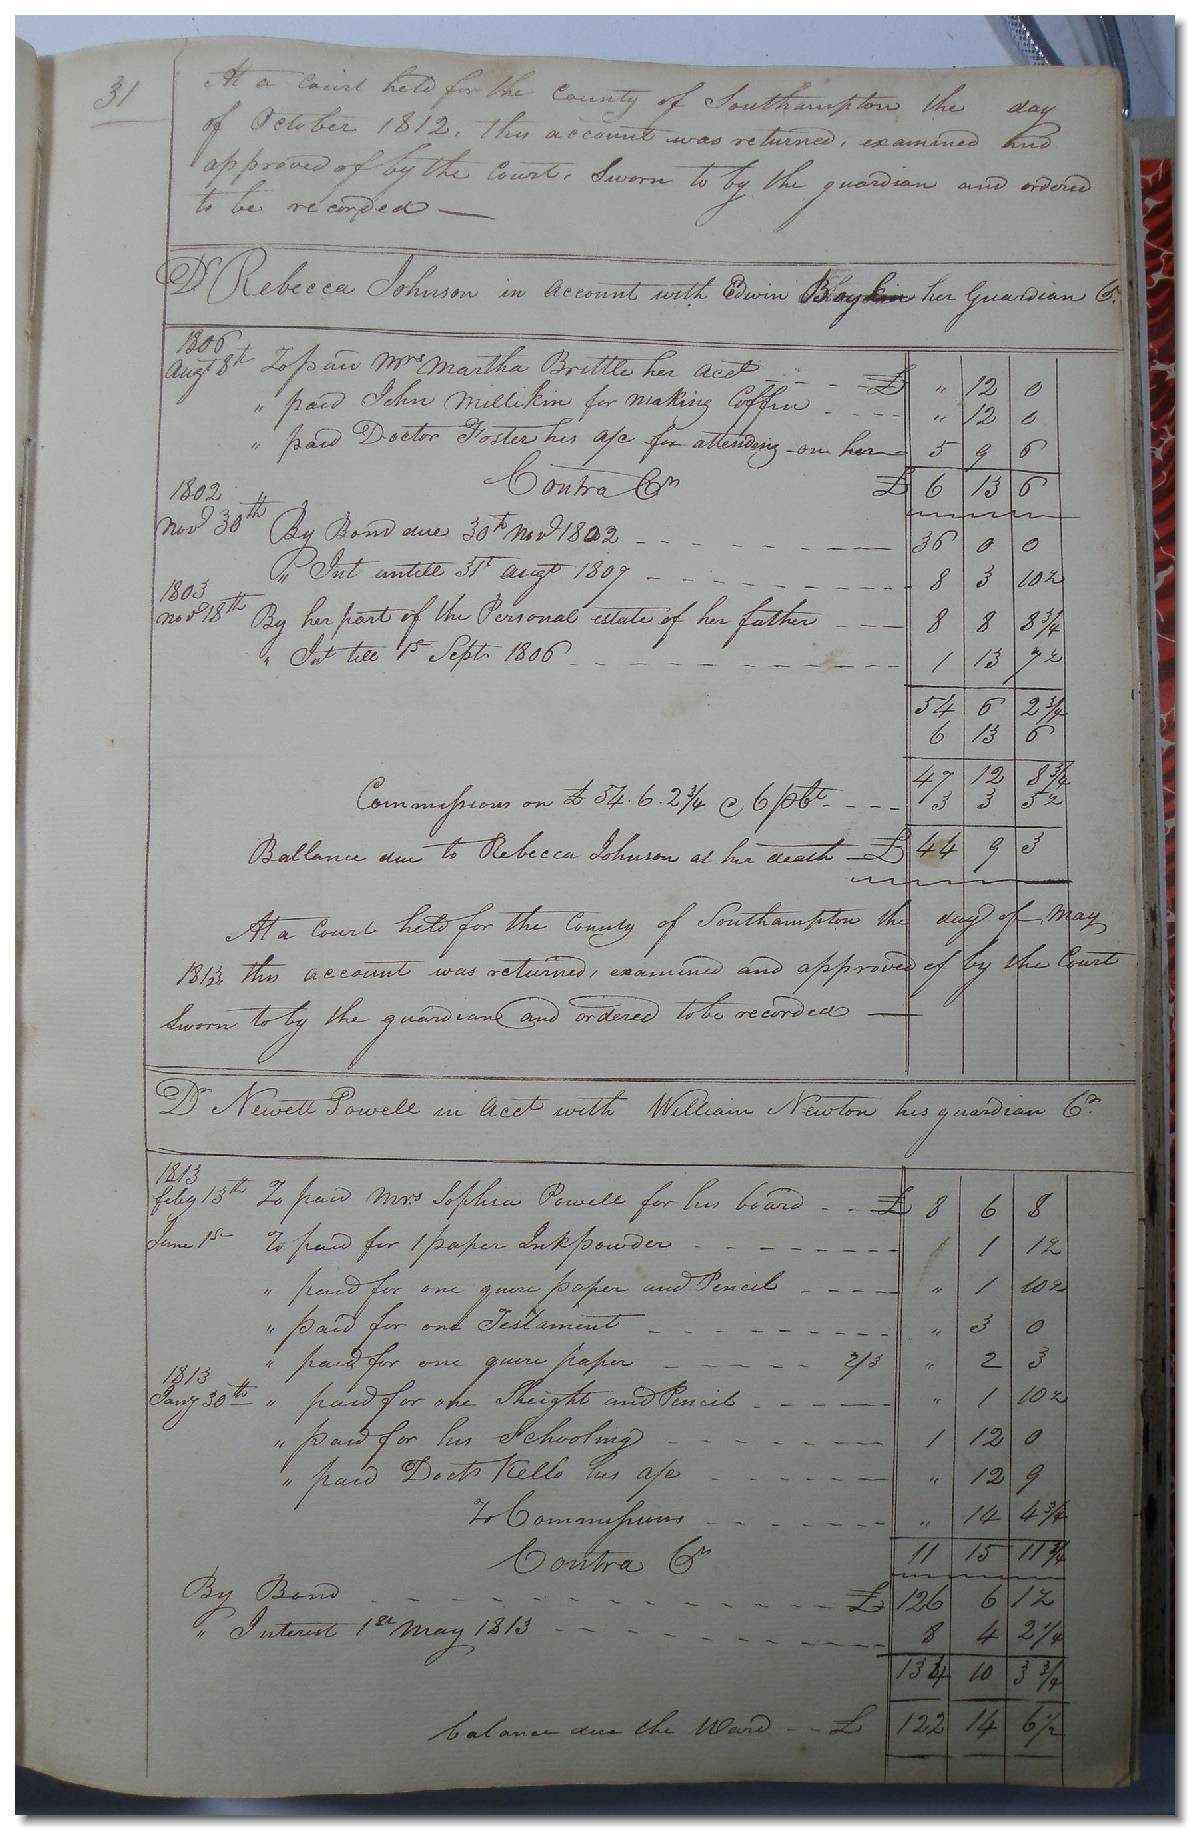 31
At a Court held for the County of Southampton the day
of October 1812. this account was returned, examined and
approved of by the Court, Sworn to by the guardian and ordered
to be recorded —
Dr Rebecca Johnson in account with Edwin Boykin her Guardian Cr.
1806
Augt 8th To paid Mrs Martha Brittle her acct - - - £ " 12 0
" paid John Millikin for making Coffin - - - " 12 0
" paid Doctor Foster his a/c for attending on her — 5 9 6
Contra Cr £ 6 13 6
1802
Novr 30th By Bond due 30th Novr 1802 - - - - 36 0 0
" Int untill 31st Augt 1807 - - - - 8 3 10½
1803
Novr 18th By her part of the Personal estate of her father — 8 8 8¾
" Int till 1st Sept 1806 - - - - 1 13 7½
54 6 2¾
6 13 6
47 12 8¾
Commissions on £ 54. 6. 2¾ @ 6 pCt - - - - 3 3 5½
Ballance due to Rebecca Johnson at her death — £ 44 9 3
At a Court held for the County of Southampton the day of May
1813, this account was returned, examined and approved of by the Court
Sworn to by the guardian and ordered to be recorded —
Dr Newett Powell in Acct with William Newton his guardian Cr.
1813
Feby 13th To paid Mrs Sophia Powell for his board - - £ 8 6 8
June 1st To paid for 1 paper Inkpowder - - - - 1 1½
" paid for one quire paper and Pencil - - - - " 1 10½
" paid for one Testament - - - - " 3 0
" paid for one quire paper - - - - 2/3 " 2 3
1813
Jany 30th " paid for one Sleight and Pencil - - - - " 1 10½
" paid for his Schooling - - - - 1 12 0
" paid Doctr Kello his a/c - - - - " 12 9
To Commissions - - - - " 14 4¾
Contra Cr 11 15 11¾
By Bond - - - - £ 126 6 1½
" Interest 1st May 1813 - - - - 8 4 2¼
134 10 3¾
balance due the Ward - - £ 122 14 6½